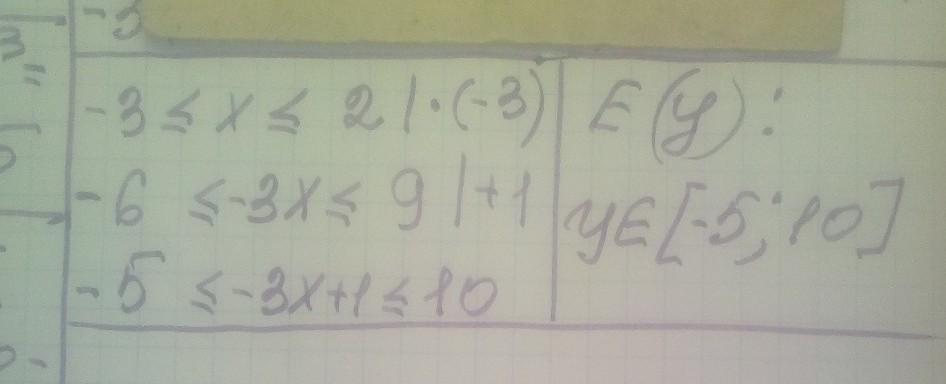 -3
-3 ≤ x ≤ 2 | · (-3)
-6 ≤ -3x ≤ 9 | +1
-5 ≤ -3x+1 ≤ 10
E(y):
y∈[-5; 10]